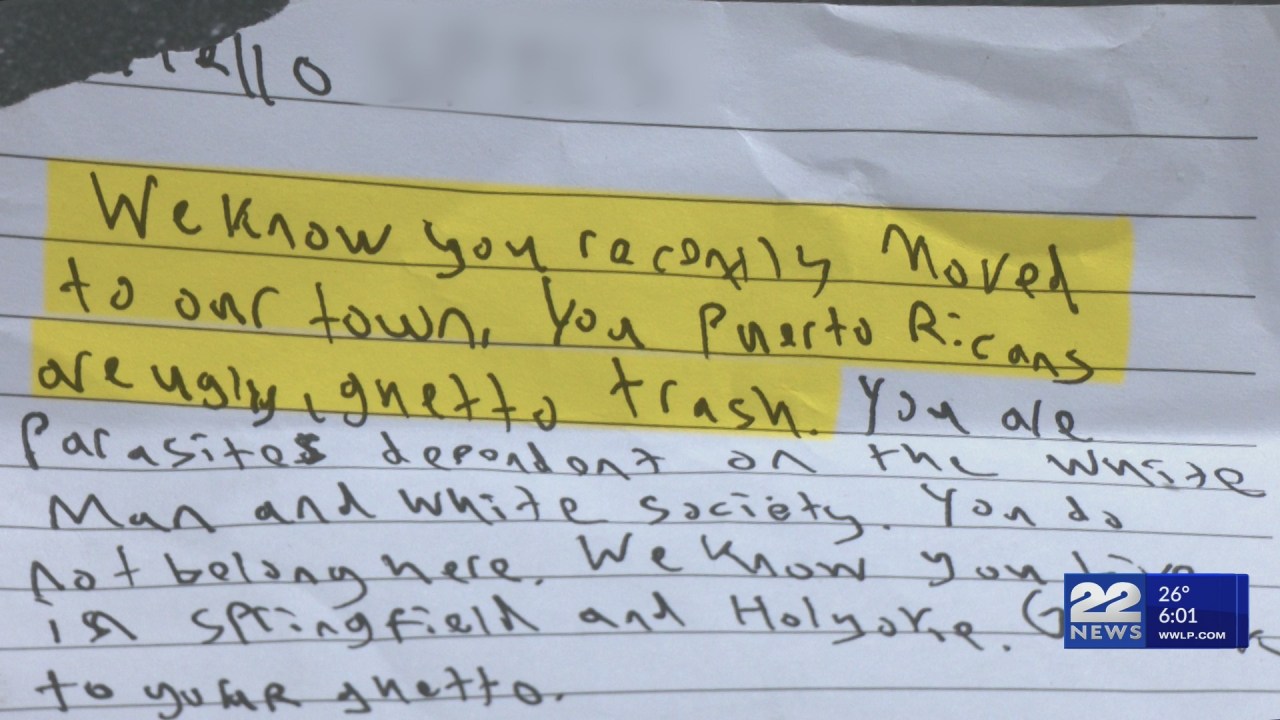 Hello
We know you racontly Moved
to our town, You Puerto Ricans
are ugly, ghetto trash. You are
Parasites depondont on the white
Man and white society. You do
not belong here. We know you live
in Springfield and Holyoke. G
to your ghetto.
22
NEWS
26°
6:01
WWLP.COM